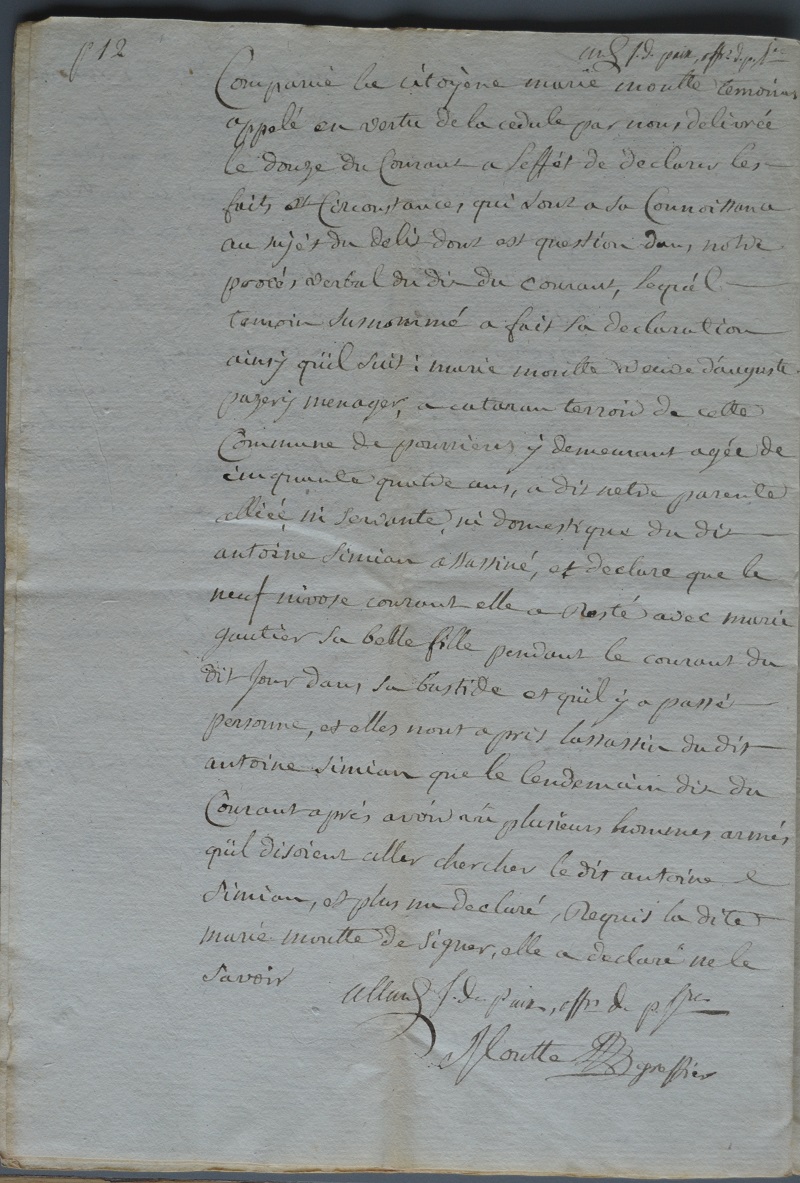 p 12
j. de paix, offr de p.
Comparuë la citoyène marie moutte temoins
appelé en vertu de la cedule par nous delivrée
le douze du Courant a l'effét de declarer les
faits et Circonstances qui sont a sa Connoissance
au sujét du delit dont est question dans notre
procés verbal du dix du courant, lequél
temoin susnommé a fait sa declaration
ainsy qüil suit : marie moutte veuve d'auguste
pazery menager, a cataran terroir de cette
Commune de pourrieres y demeurant agée de
cinquante quatre ans, a dit netre parente
alliée, ni servante, ni domestique du dit
antoine Simian assassiné, et declare que le
neuf nivose courant elle a Resté avec marie
gautier sa belle fille pendant le courant du
dit Jour dans sa bastide et qüil y a passé
personne, et elles nont apris lassassin du dit
antoine Simian que le lendemain dix du
Courant aprés avoir vû plusieurs hommes armés
qüil disoient aller chercher le dit antoine
Simian, et plus na declaré, Requis la dite
marie moutte de signer, elle a declaré ne le
savoir
allard J. de Paix, offr de p
Moutte greffier